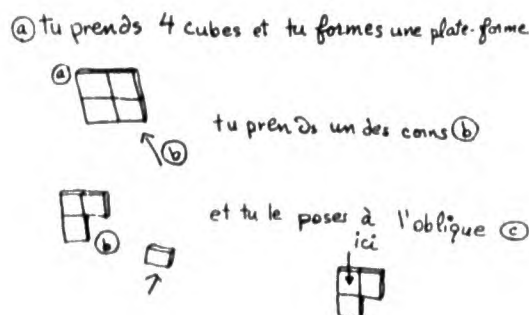 ⓐ tu prends 4 cubes et tu formes une plate-forme
ⓐ
tu prends un des coins ⓑ
ⓑ
et tu le poses à l'oblique ⓒ
ⓑ
ici